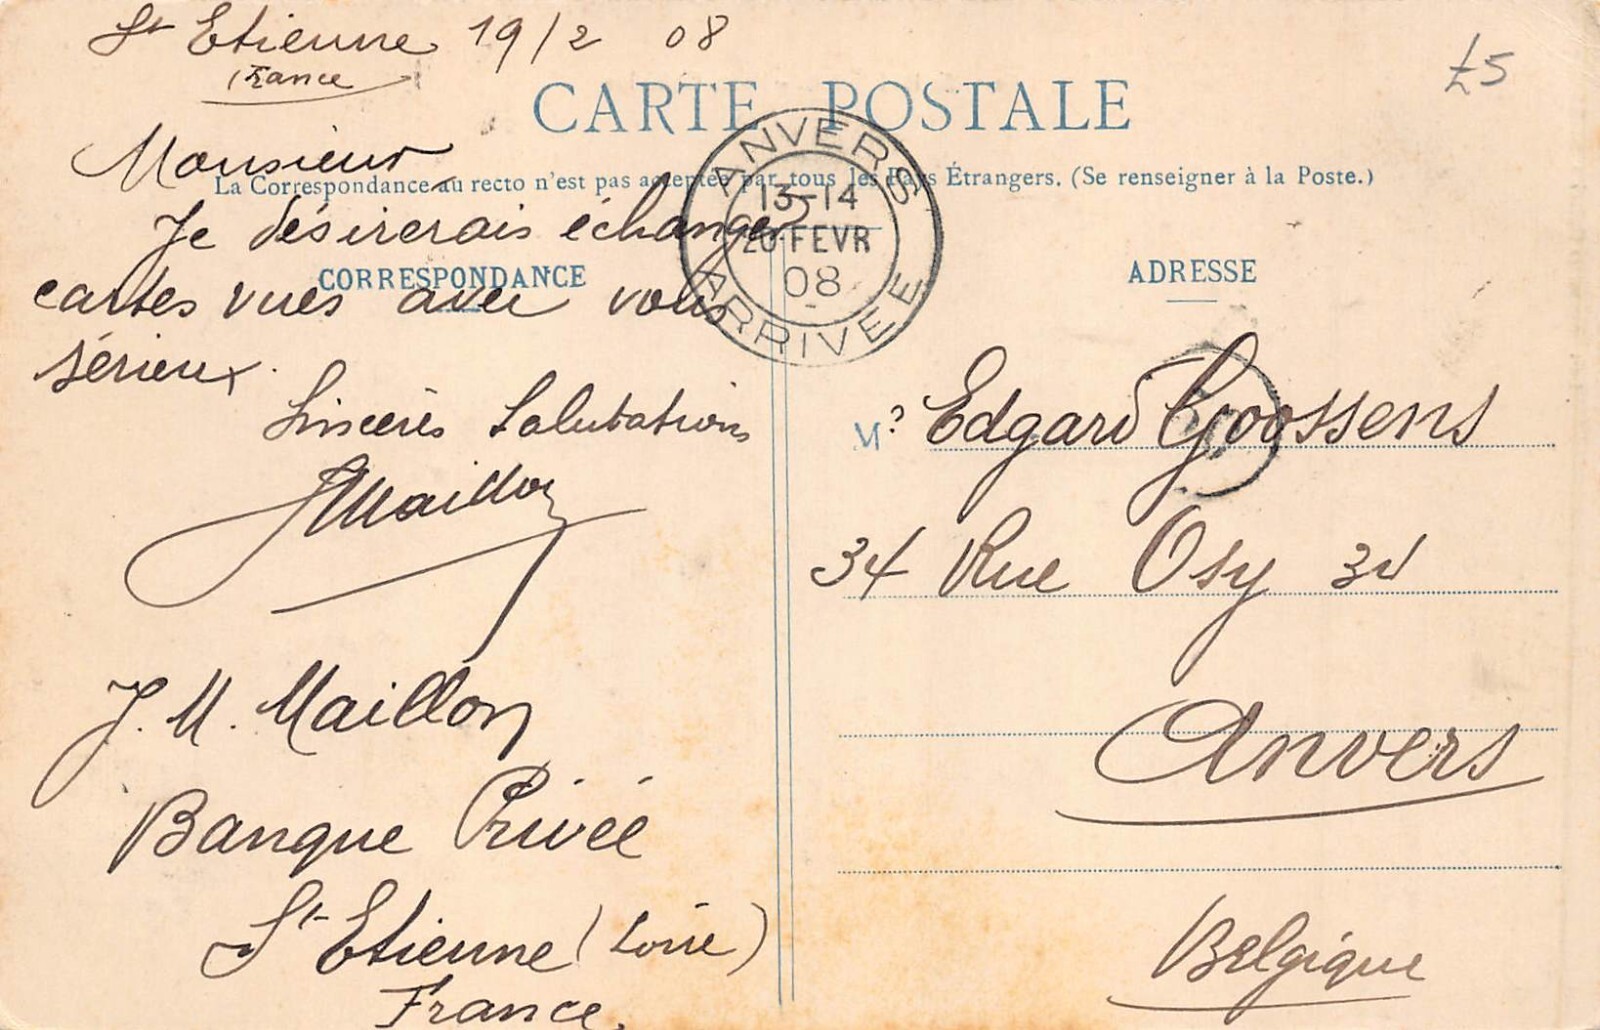 St Etienne 19/2 08
(France)
£5
CARTE POSTALE
La Correspondance au recto n'est pas acceptée par tous les Pays Étrangers. (Se renseigner à la Poste.)
ANVERS
13-14
20 FEVR
08
ARRIVEE
CORRESPONDANCE
Monsieur
Je désirerais échanger
cartes vues avec vous
sérieux.
Sincères Salutations
JMMaillon
J. M. Maillon
Banque Privée
St Etienne (Loire)
France.
ADRESSE
Mr Edgard Goossens
34 Rue Osy 34
Anvers
Belgique